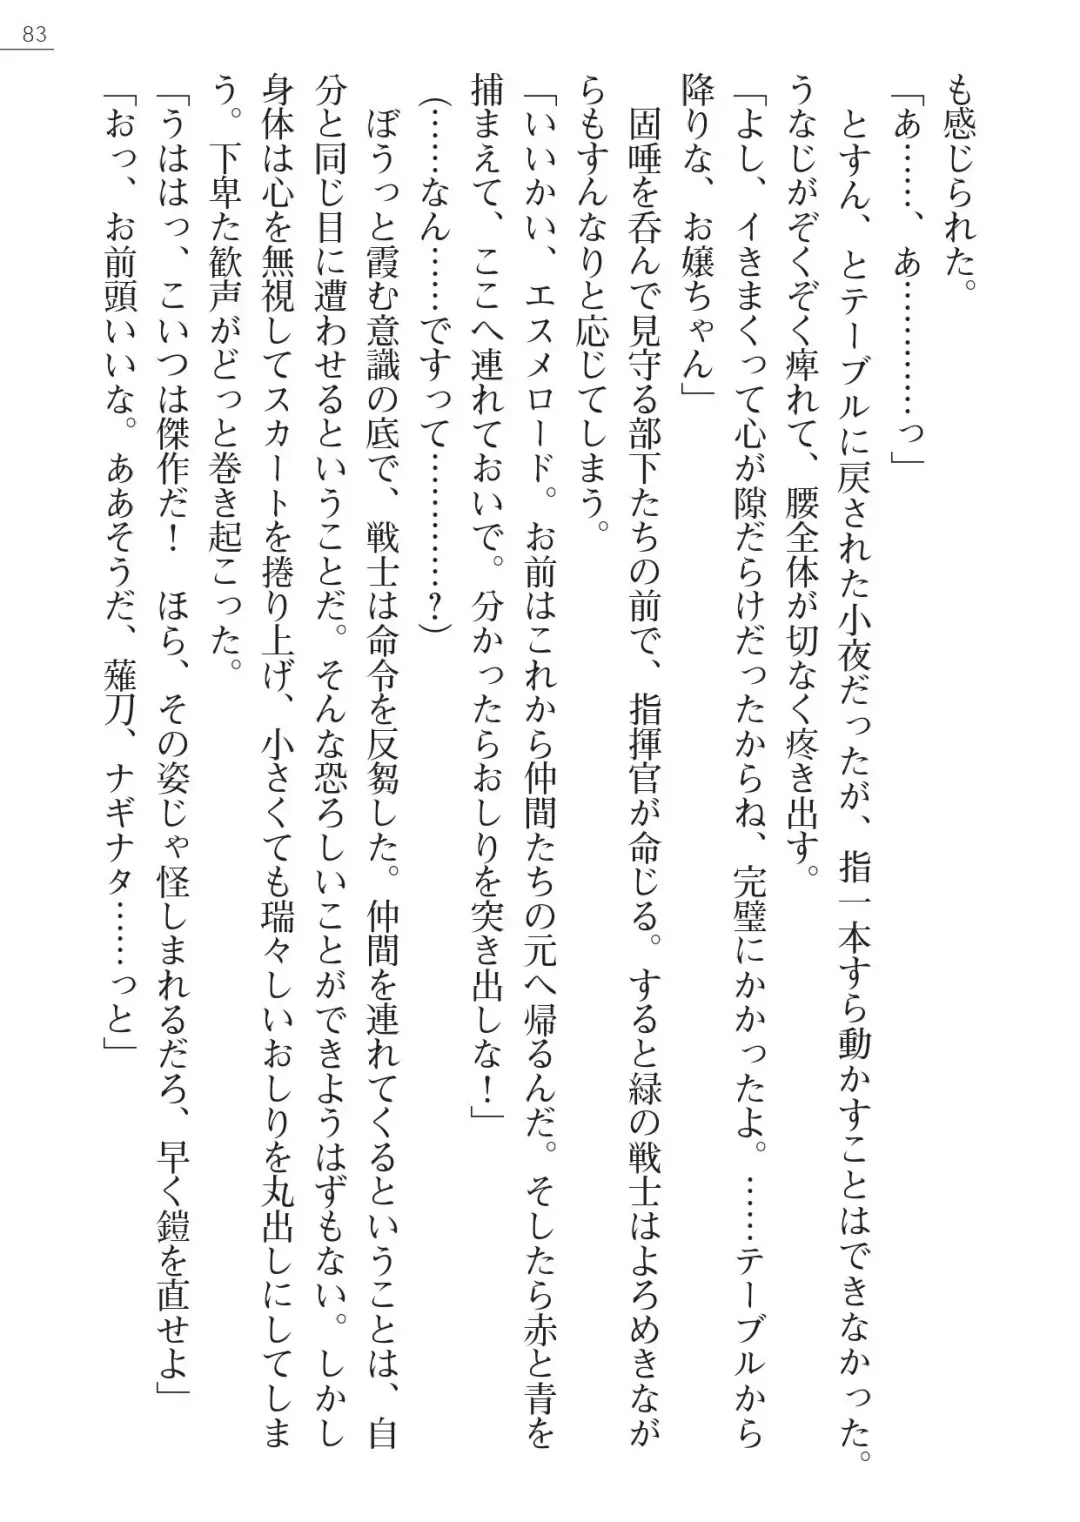 83
も感じられた。
「あ……、あ…………っ」
とすん、とテーブルに戻された小夜だったが、指一本すら動かすことはできなかった。
うなじがぞくぞく痺れて、腰全体が切なく疼き出す。
「よし、イきまくって心が隙だらけだったからね、完璧にかかったよ。……テーブルから
降りな、お嬢ちゃん」
固唾を呑んで見守る部下たちの前で、指揮官が命じる。すると緑の戦士はよろめきなが
らもすんなりと応じてしまう。
「いいかい、エスメロード。お前はこれから仲間たちの元へ帰るんだ。そしたら赤と青を
捕まえて、ここへ連れておいで。分かったらおしりを突き出しな！」
（……なん……ですって…………？）
ぼうっと霞む意識の底で、戦士は命令を反芻した。仲間を連れてくるということは、自
分と同じ目に遭わせるということだ。そんな恐ろしいことができようはずもない。しかし
身体は心を無視してスカートを捲り上げ、小さくても瑞々しいおしりを丸出しにしてしま
う。下卑た歓声がどっと巻き起こった。
「うははっ、こいつは傑作だ！　ほら、その姿じゃ怪しまれるだろ、早く鎧を直せよ」
「おっ、お前頭いいな。ああそうだ、薙刀、ナギナタ……っと」